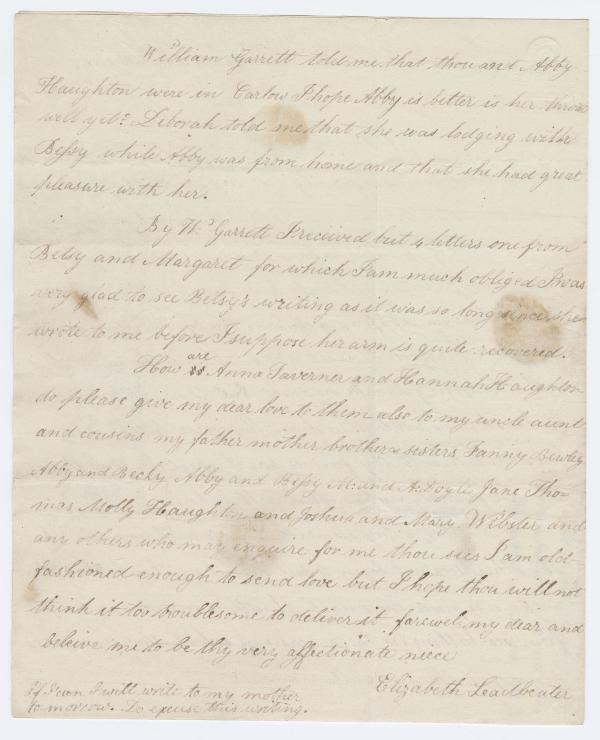 William Garrett told me that thou and Abby
Haughton were in Carlow I hope Abby is better is her throat
well yet? Deborah told me that she was lodging with
Bessy while Abby was from home and that she had great
pleasure with her.
By Wm. Garrett I received but 4 letters one from
Betsy and Margaret for which I am much obliged I was
very glad to see Betsy's writing as it was so long since she
wrote to me before I suppose her arm is quite recovered.
How are Anna Taverner and Hannah Haughton
do please give my dear love to them also to my uncle aunt
and cousins my father mother brother & sisters Fanny Bewley
Abby and Becky Abby and Bessy M: and A: Doyle Jane Tho=
mas Molly Haughton and Joshua and Mary Webster and
any others who may enquire for me thou sees I am old
fashioned enough to send love but I hope thou will not
think it too troublesome to deliver it farewel my dear and
beleive me to be thy very affectionate niece
Elizabeth Leadbeater
If I can I will write to my mother
to morrow. Do excuse this writing.